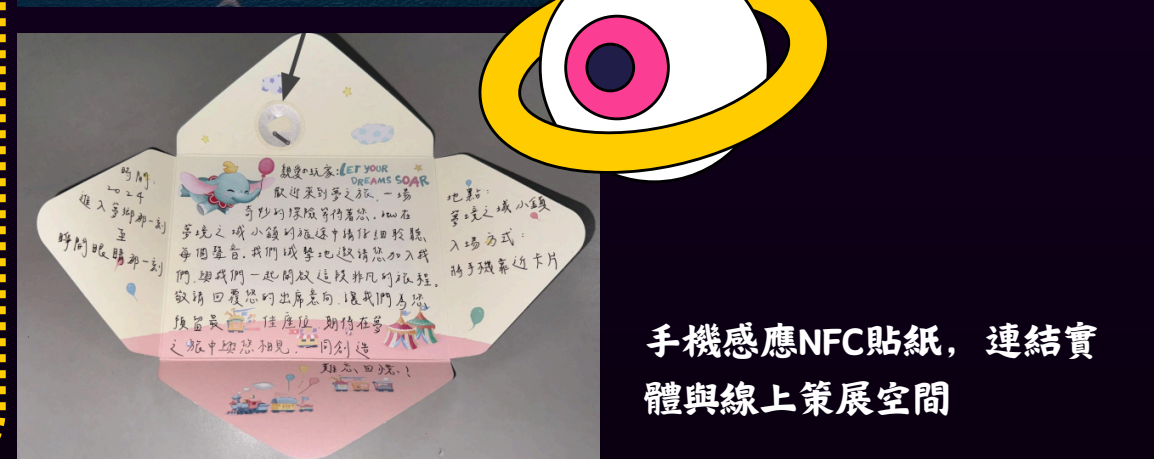 時間:
2024
進入夢鄉那一刻
至
睜開眼睛那一刻
親愛的玩家:
LET YOUR
DREAMS SOAR
歡迎來到夢之旅,一場
奇妙的探險等待著您,
在
夢境之城小鎮的旅途中請仔細聆聽
每個聲音,我們誠摯地邀請您加入我
們,與我們一起開啟這段非凡的旅程。
敬請回覆您的出席意向,讓我們為您
預留最佳座位,期待在夢
之旅中與您相見,一同創造
難忘回憶!
地點:
夢境之城小鎮
入場方式:
將手機靠近卡片
手機感應NFC貼紙,連結實
體與線上策展空間